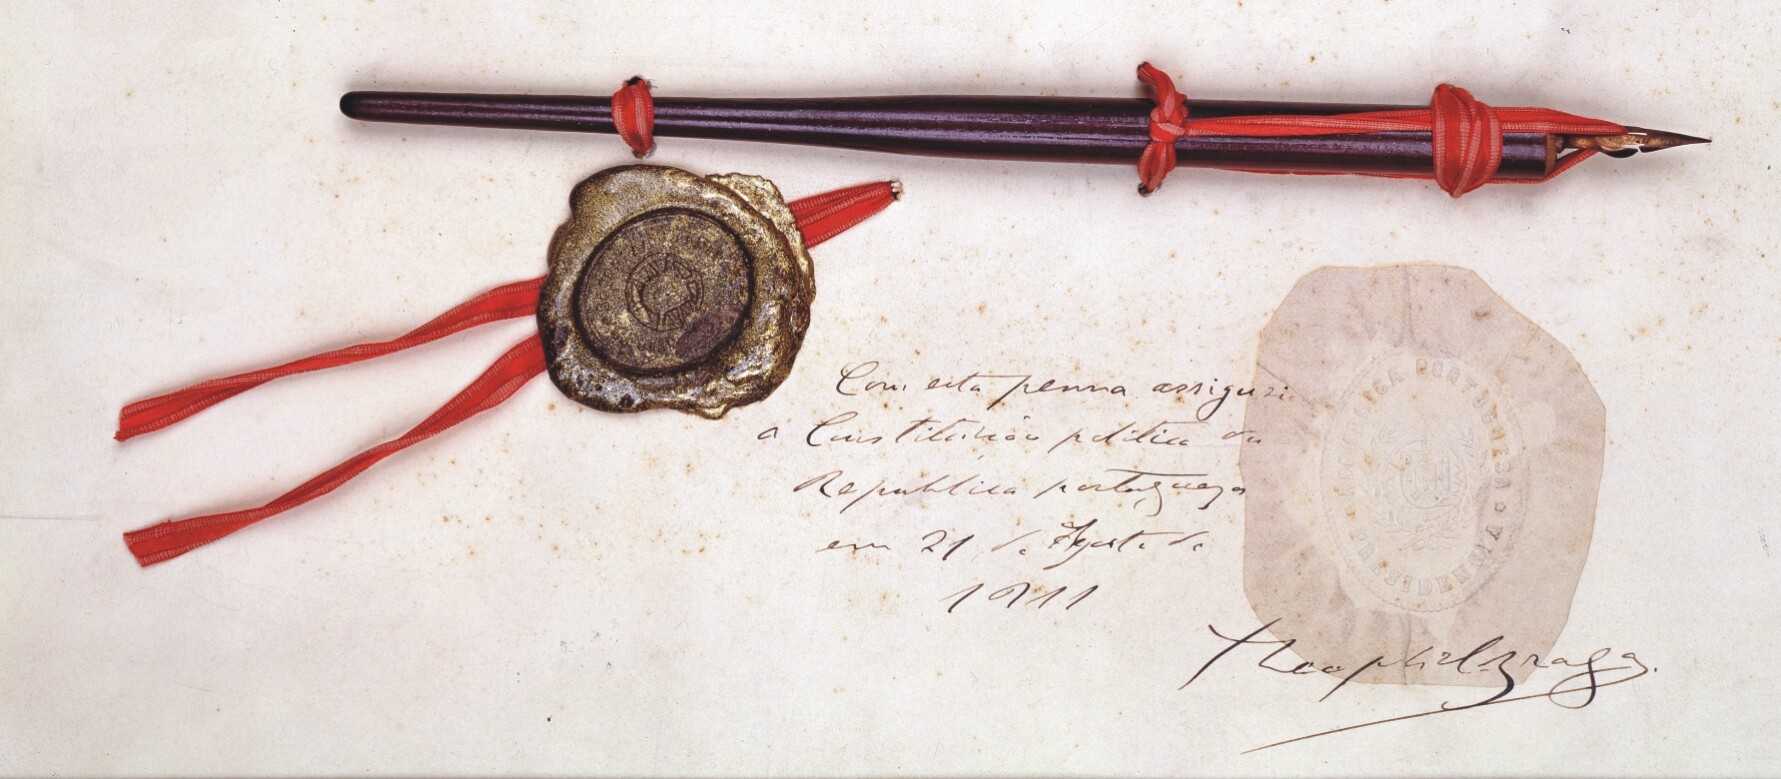 Com esta penna assignei
a Constituição politica da
Republica portugueza
em 21 de Agosto de
1911
REPUBLICA PORTUGUESA
PRESIDENCIA
Theophilo Braga.